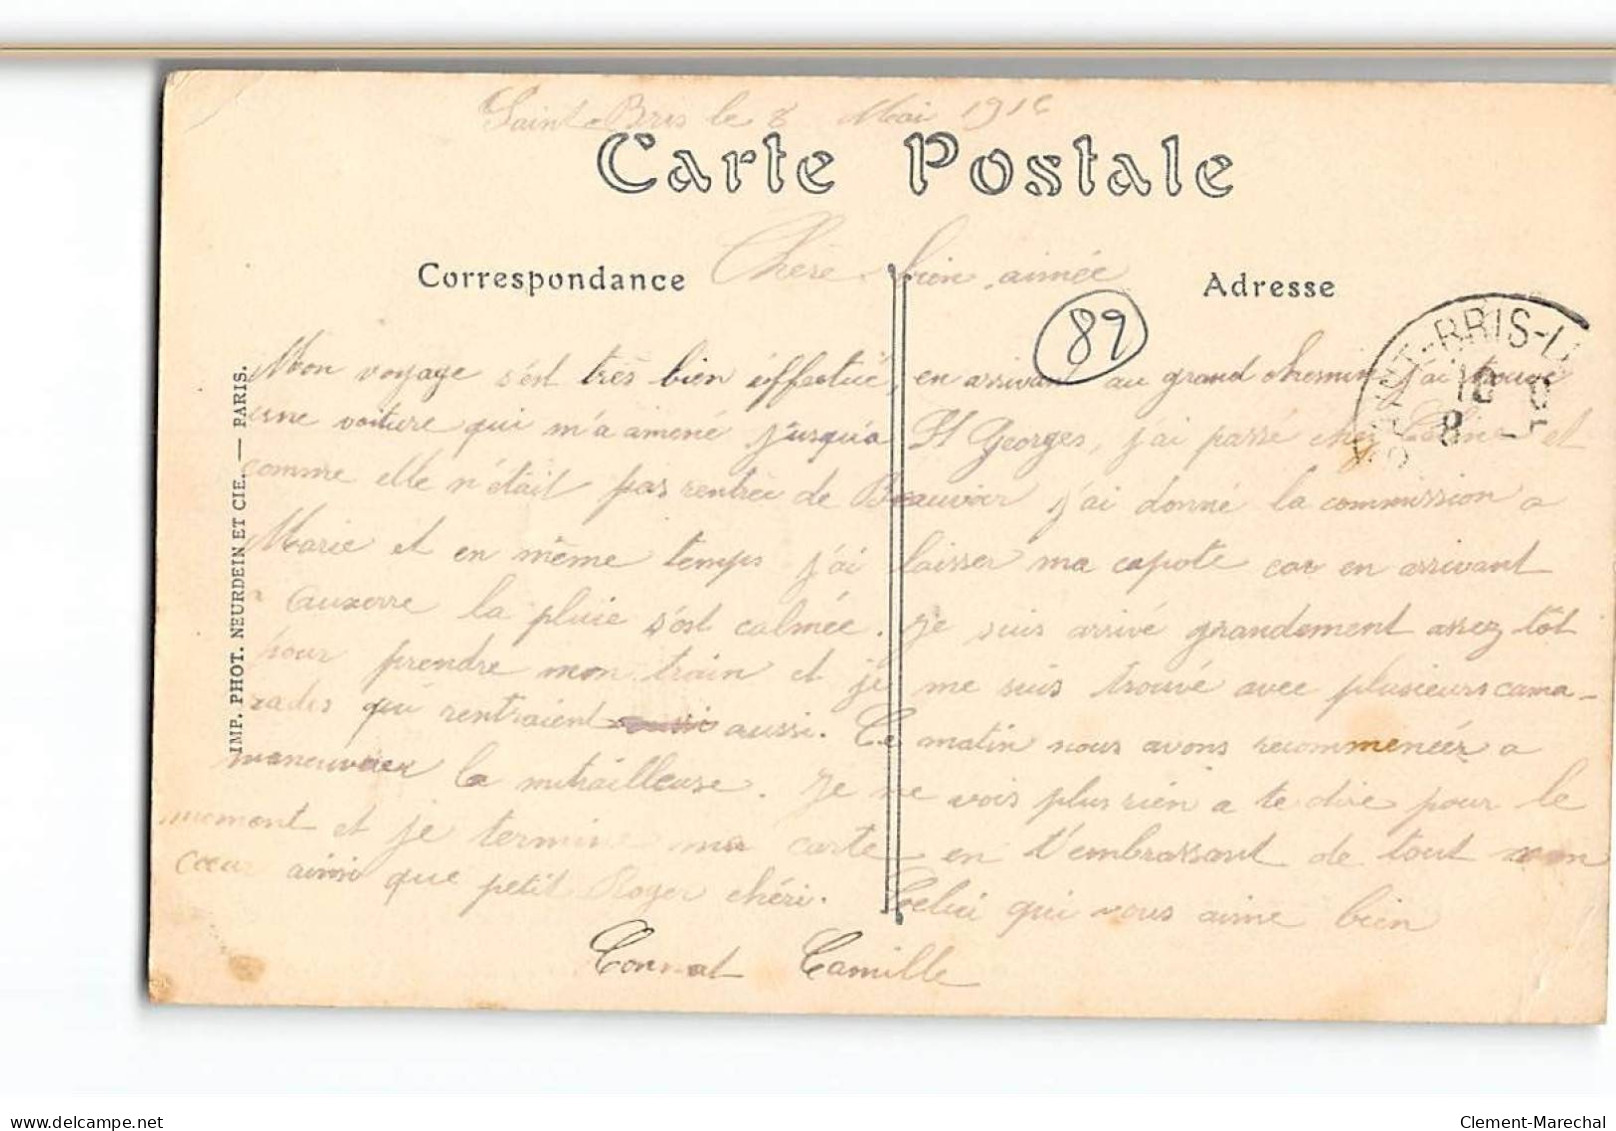 Saint-Bris le 8 Mai 1916
Carte Postale
Correspondance
Chère bien aimée
Adresse
89
SAINT-BRIS-L
10
8
IMP. PHOT. NEURDEIN ET CIE. — PARIS.
Mon voyage s'est très bien effectué, en arrivant au grand chemin j'ai trouvé
une voiture qui m'a amené jusqu'a St Georges, j'ai passé chez et
comme elle n'était pas rentrée de Beauvoir j'ai donné la commission a
Marie et en même temps j'ai laisser ma capote car en arrivant
a Auxerre la pluie s'est calmée. Je suis arrivé grandement assez tôt
pour prendre mon train et je me suis trouvé avec plusieurs cama-
rades qui rentraient aussi. Ce matin nous avons recommencér a
maneuvrer la mitrailleuse. Je ne vois plus rien a te dire pour le
moment et je termine ma carte en t'embrassant de tout mon
cœur ainsi que petit Roger chéri. Celui qui vous aime bien
Camille
Clement-Marechal
delcampe.net